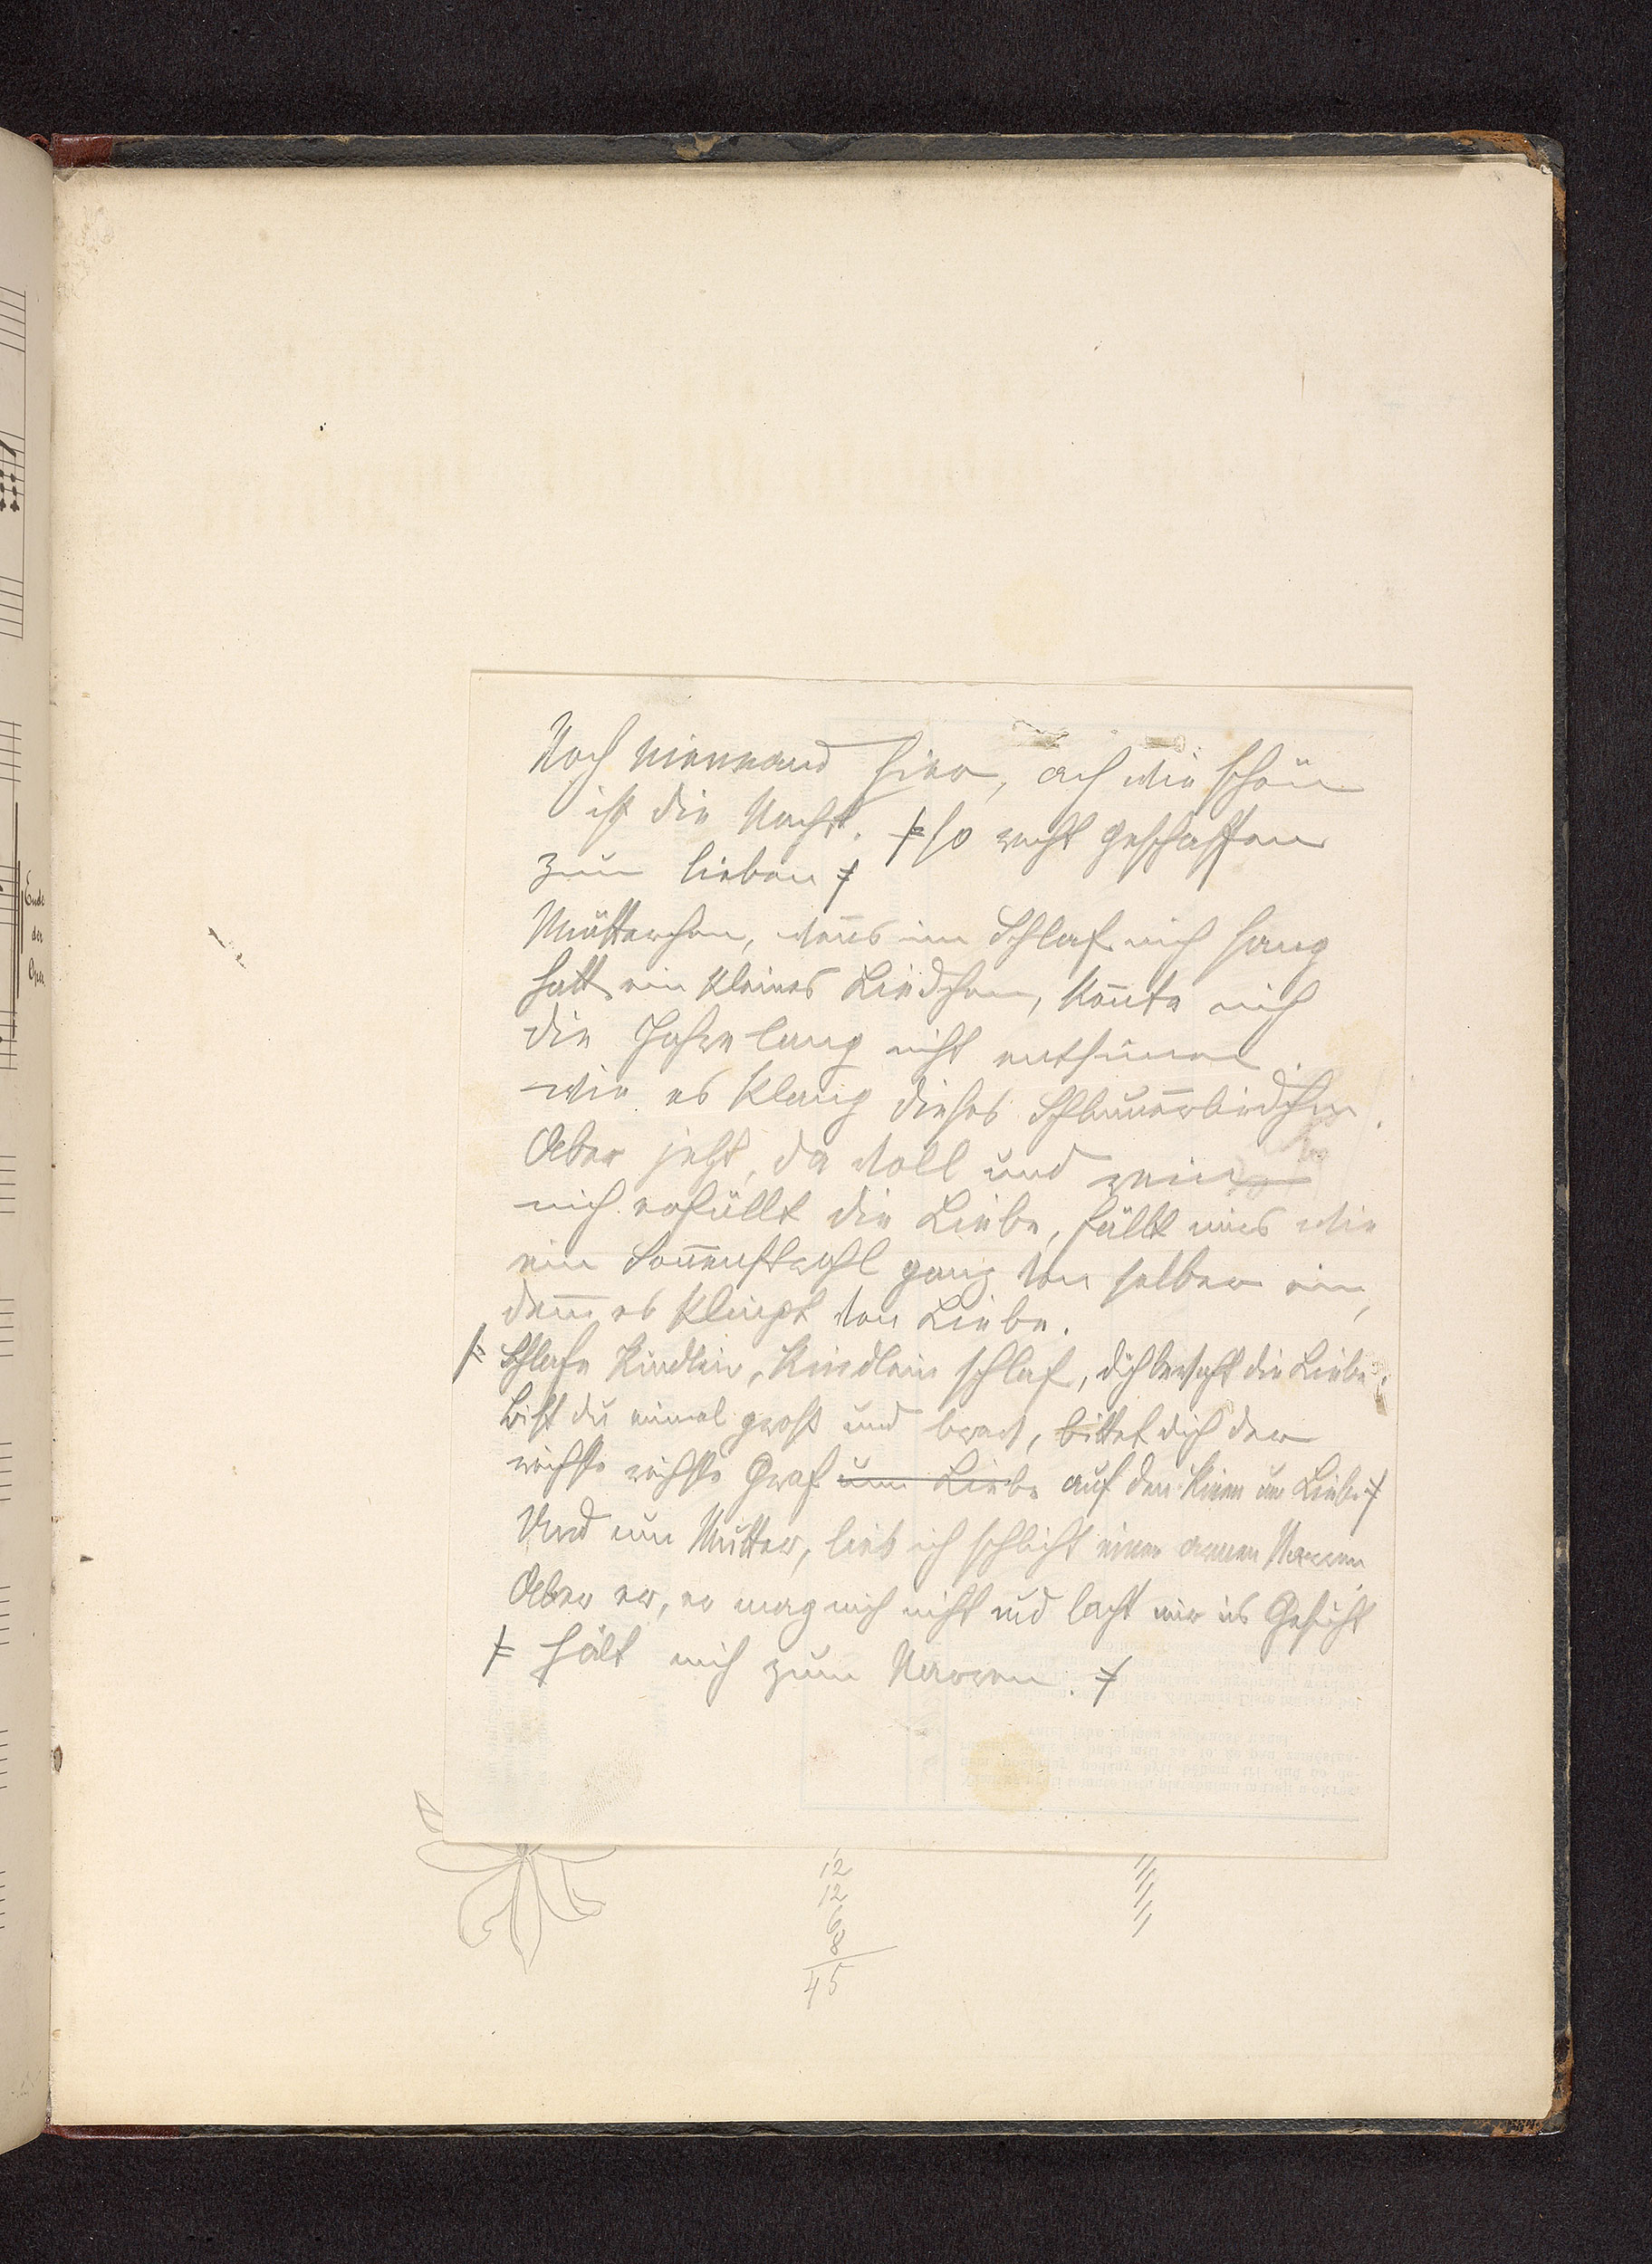 Ende
der
Oper
Noch niemand hier, ach wie schön
ist die Nacht. so recht geschaffen
zum lieben
Mütterchen, wenns im Schlaf mich sang
hatt ein kleines Liedchen, konnte mich
die Jahre lang nicht entsinnen
wie es klang dieses Schlummerliedchen.
Aber jetzt, da voll und rein
mich erfüllt die Liebe, fällt mirs wie
ein Sonnenstrahl ganz von selber ein,
denn es klingt von Liebe.
Schlafe Kindlein, Kindlein schlaf, dich bewacht die Liebe.
bist du einmal groß und brav, bittet dich der
reichste reichste Graf um Liebe auf den Knien um Liebe
Und nun Mutter, lieb ich schlicht einen armen Narren
Aber er, er mag mich nicht und lacht mir ins Gesicht
hält mich zum Narren.
12
12
6
8
45